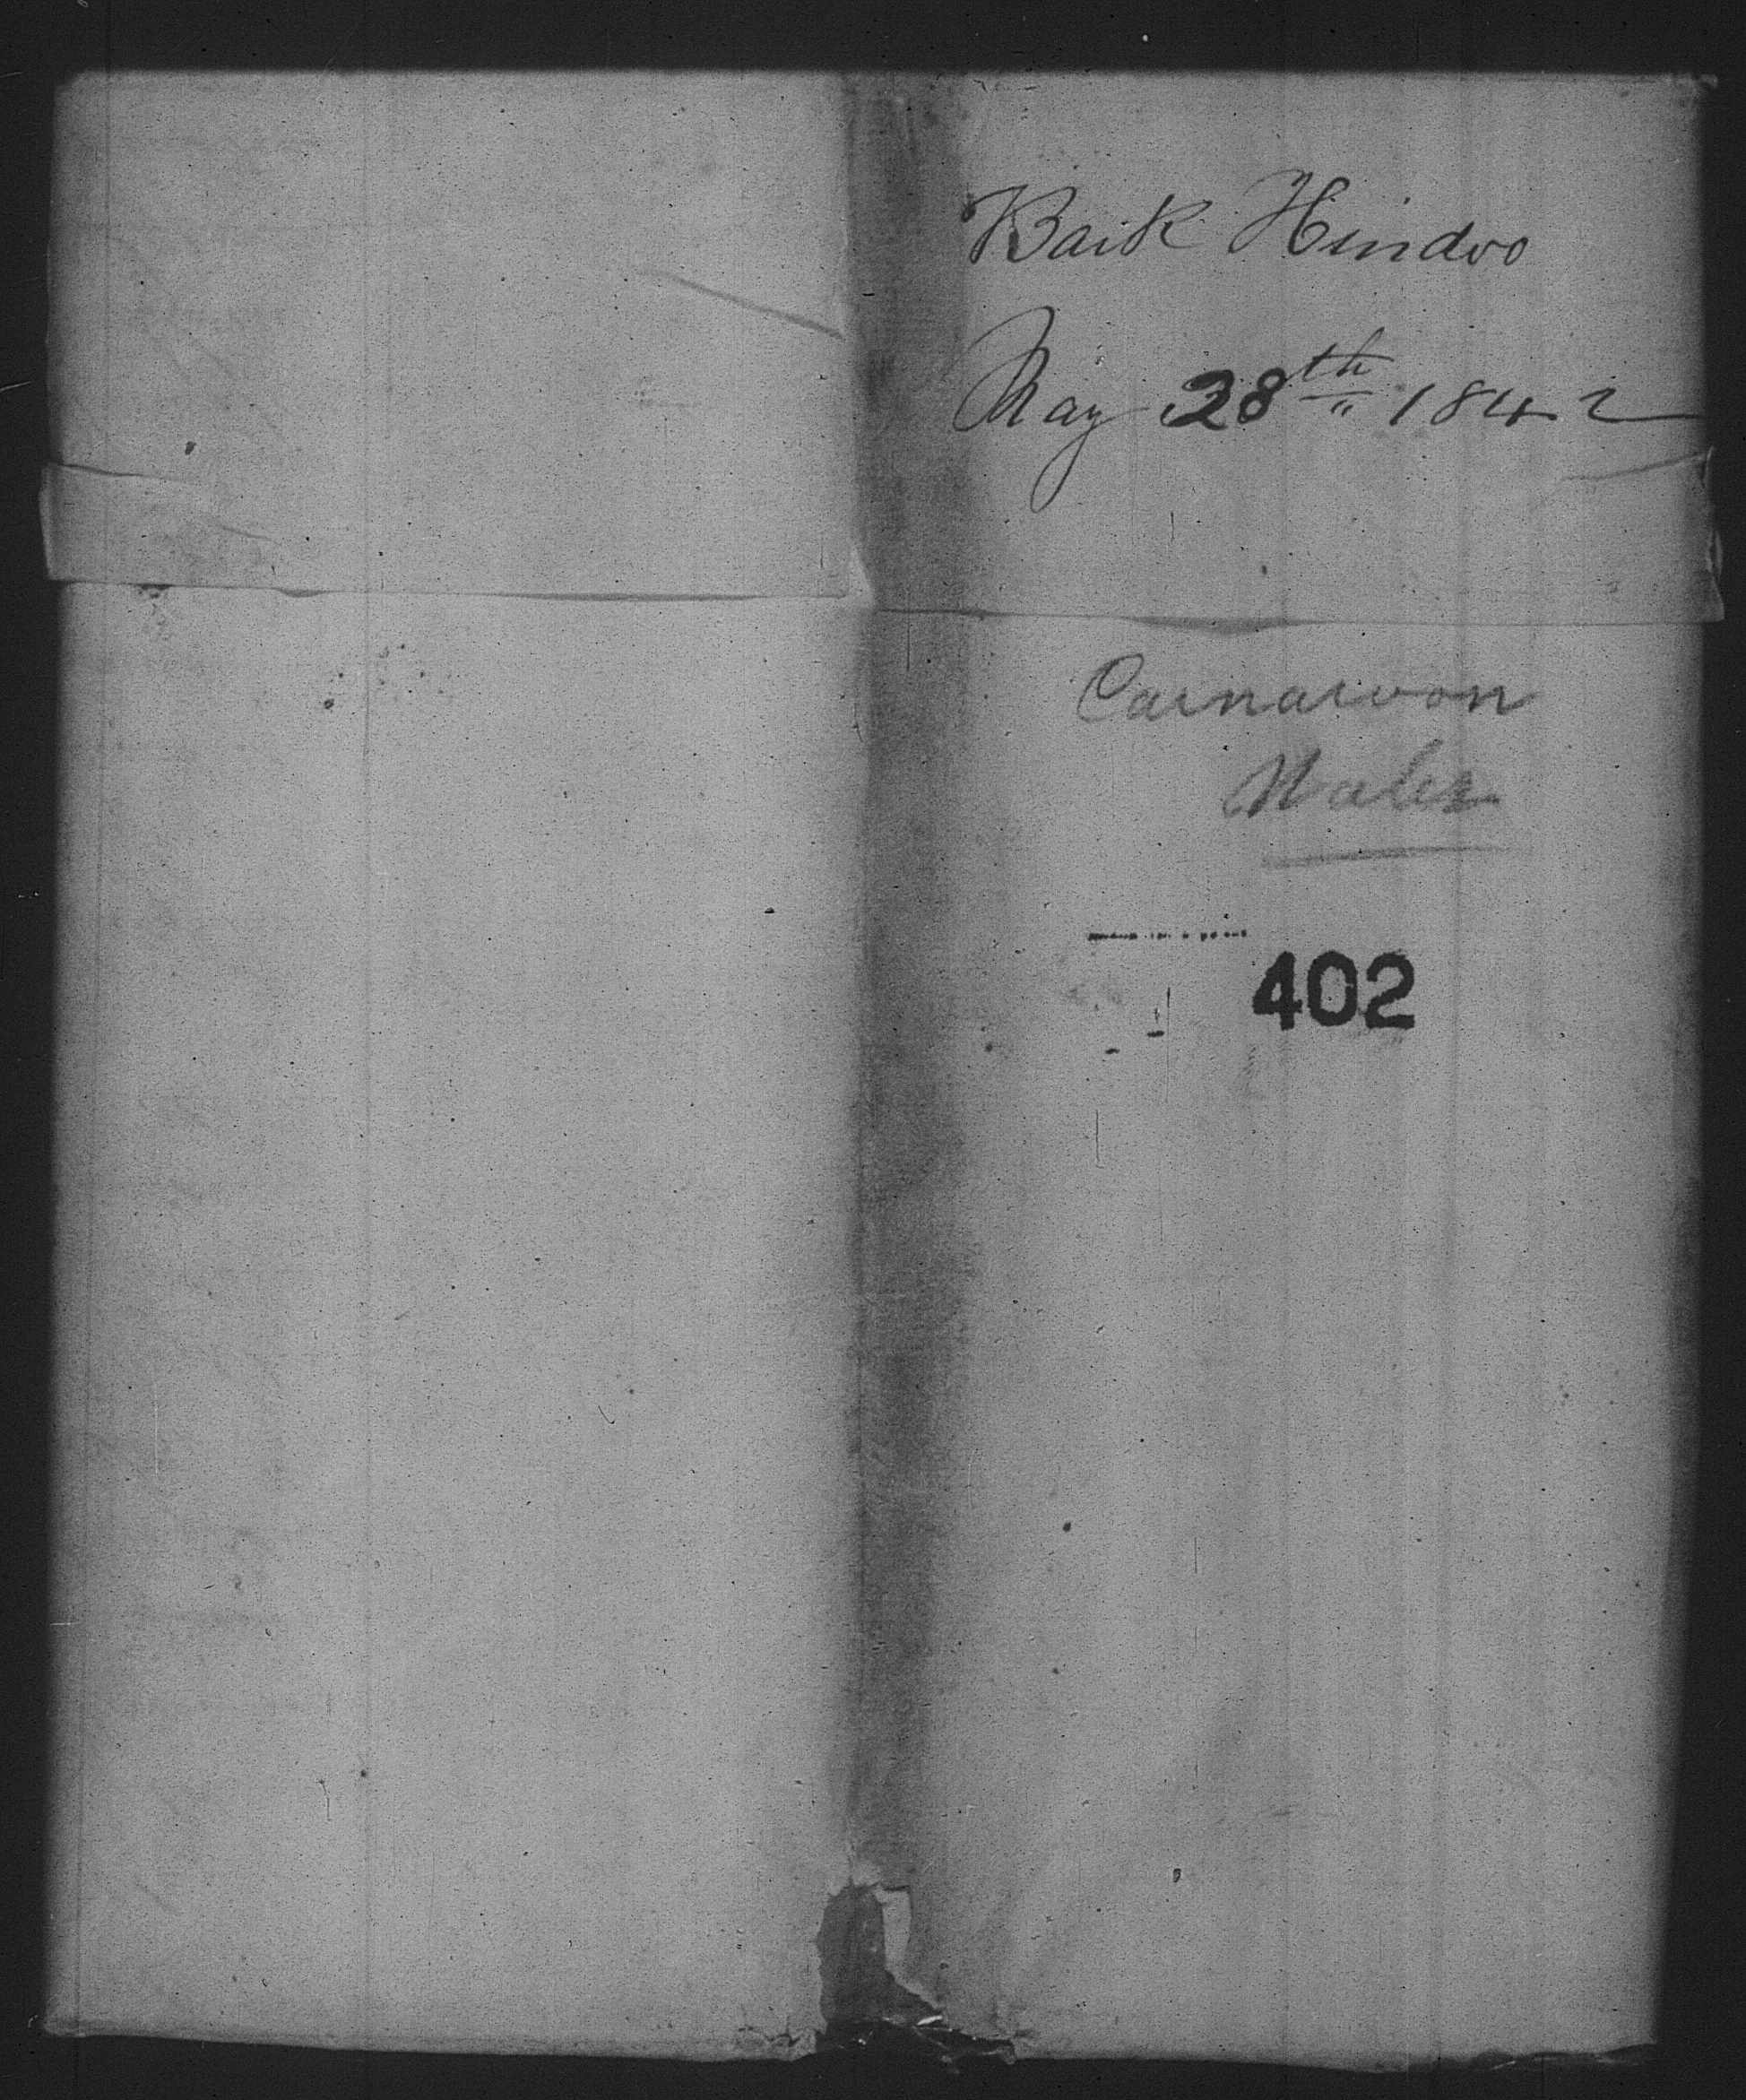 Bark Hindoo
May 28th 1842
Carnarvon
Wales
402